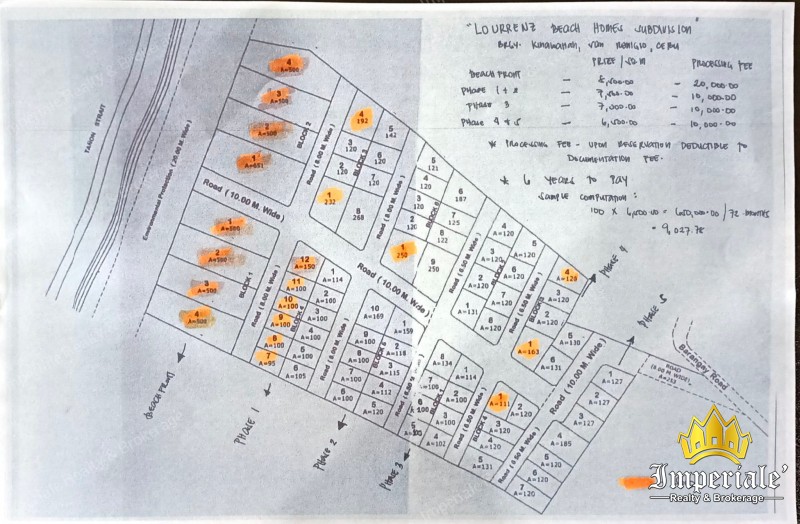 "LOURRENZ BEACH HOMES SUBDIVISION"
BRGY. KINAWAHAN, SAN REMIGIO, CEBU
PRIZE / SQ.M
PROCESSING FEE
BEACH FRONT
— 20,000.00
PHASE 1 & 2 — 7,500.00 — 10,000.00
PHASE 3 — 7,000.00 — 10,000.00
PHASE 4 & 5 — 6,500.00 — 10,000.00
* PROCESSING FEE - UPON RESERVATION DEDUCTIBLE TO
DOCUMENTATION FEE.
* 6 YEARS TO PAY
SAMPLE COMPUTATION:
100 X 6,500.00 = 650,000.00 / 72 MONTHS
= 9,027.78
TANON STRAIT
Environmental Protection (20.00 M. Wide)
4
A=500
3
A=500
2
A=500
1
A=651
BLOCK 2
Road (8.00 M. Wide)
4
192
5
142
3
120
6
120
2
120
7
120
1
232
8
268
BLOCK 3
Road (8.00 M. Wide)
5
121
4
120
6
187
3
120
7
125
2
120
8
122
1
250
9
250
Road (10.00 M. Wide)
1
A=500
2
A=500
3
A=500
4
A=500
BLOCK 1
Road (8.00 M. Wide)
12
A=150
1
A=114
11
A=100
2
A=100
10
A=100
3
A=100
9
A=100
4
A=100
8
A=100
6
A=100
7
A=95
6
A=105
Road (8.00 M. Wide)
10
A=169
1
A=159
9
A=100
2
A=118
8
A=100
3
A=115
7
A=100
4
A=112
6
A=100
5
A=120
BLOCK 5
Road (10.00 M. Wide)
Road (6.50 M. Wide)
4
A=120
5
A=120
3
A=120
6
A=120
2
A=120
A=120
1
A=131
8
A=120
Road (6.50 M. Wide)
4
A=129
3
A=120
2
A=120
5
A=130
1
A=163
6
A=131
8
A=134
1
A=114
A=100
2
A=100
6
A=100
3
A=100
4
A=102
Road (6.50 M. Wide)
1
A=111
2
A=120
3
A=120
4
A=120
5
A=131
BLOCK 4
Road (6.50 M. Wide)
Road (10.00 M. Wide)
1
A=127
2
A=127
3
A=127
4
A=185
5
A=120
6
A=120
7
A=120
ROAD
(8.00 M. WIDE)
A=213
Barangay Road
BEACH FRONT
PHASE 1
PHASE 2
PHASE 3
PHASE 4
PHASE 5
Imperiale'
Realty & Brokerage